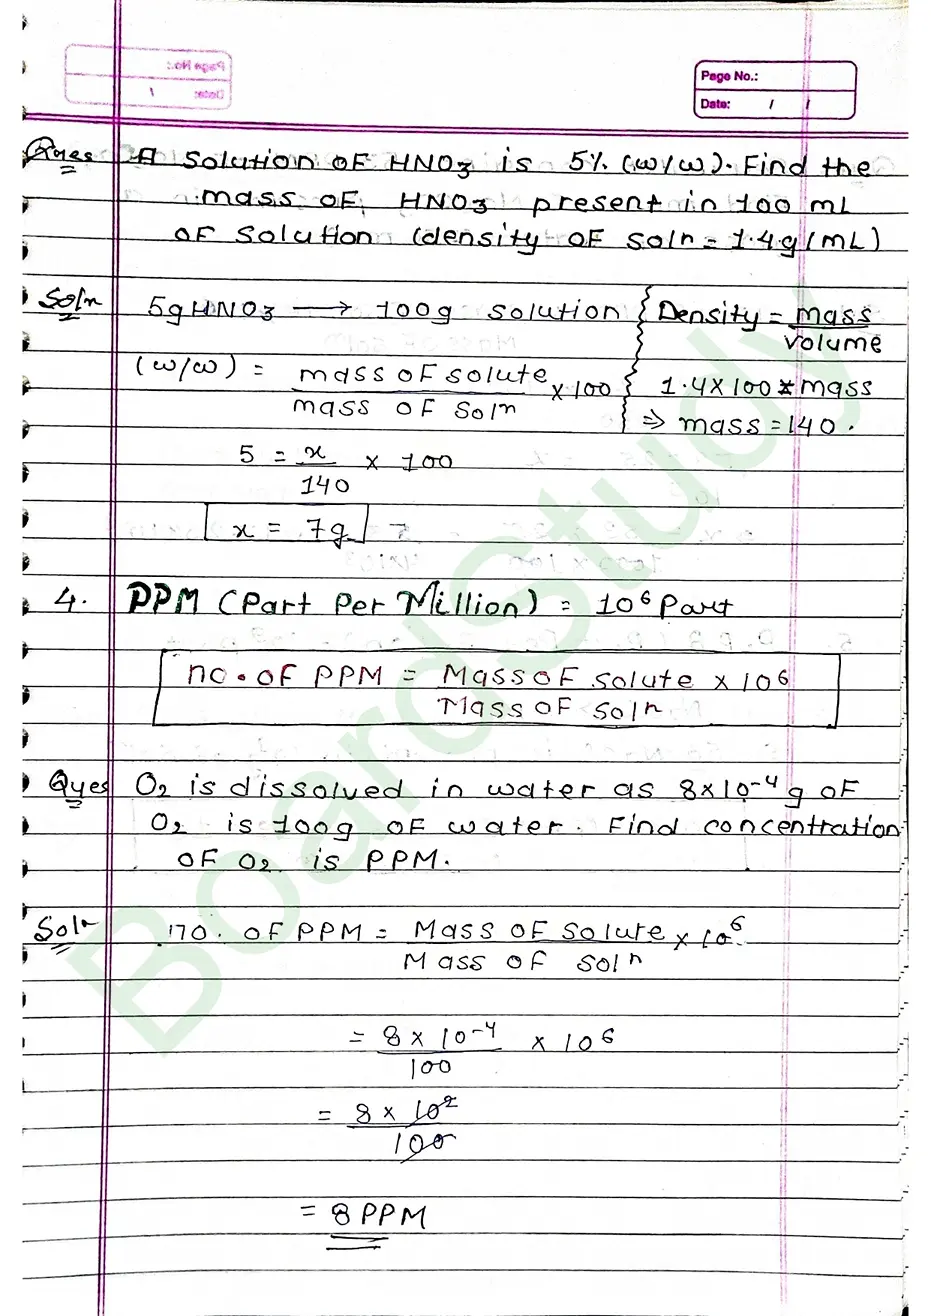 Page No.:
Date: / /
Ques A Solution OF HNO3 is 5% (w/w). Find the
mass OF HNO3 present in 100 mL
OF Solution (density OF soln = 1.4g/mL)
Soln 5g HNO3 → 100g solution
Density = mass/volume
(w/w) = mass OF solute/mass OF Soln × 100
1.4 × 100 = mass
⇒ mass = 140.
5 = x/140 × 100
x = 7g
4. PPM (Part Per Million) = 10⁶ Part
no. OF PPM = Mass OF Solute/Mass OF Soln × 10⁶
Ques O2 is dissolved in water as 8×10⁻⁴ g OF
O2 is 100g OF water. Find concentration
OF O2 is PPM.
Soln no. OF PPM = Mass OF Solute/Mass OF Soln × 10⁶
= 8 × 10⁻⁴/100 × 10⁶
= 8 × 10²/100
= 8 PPM
BoardStudy